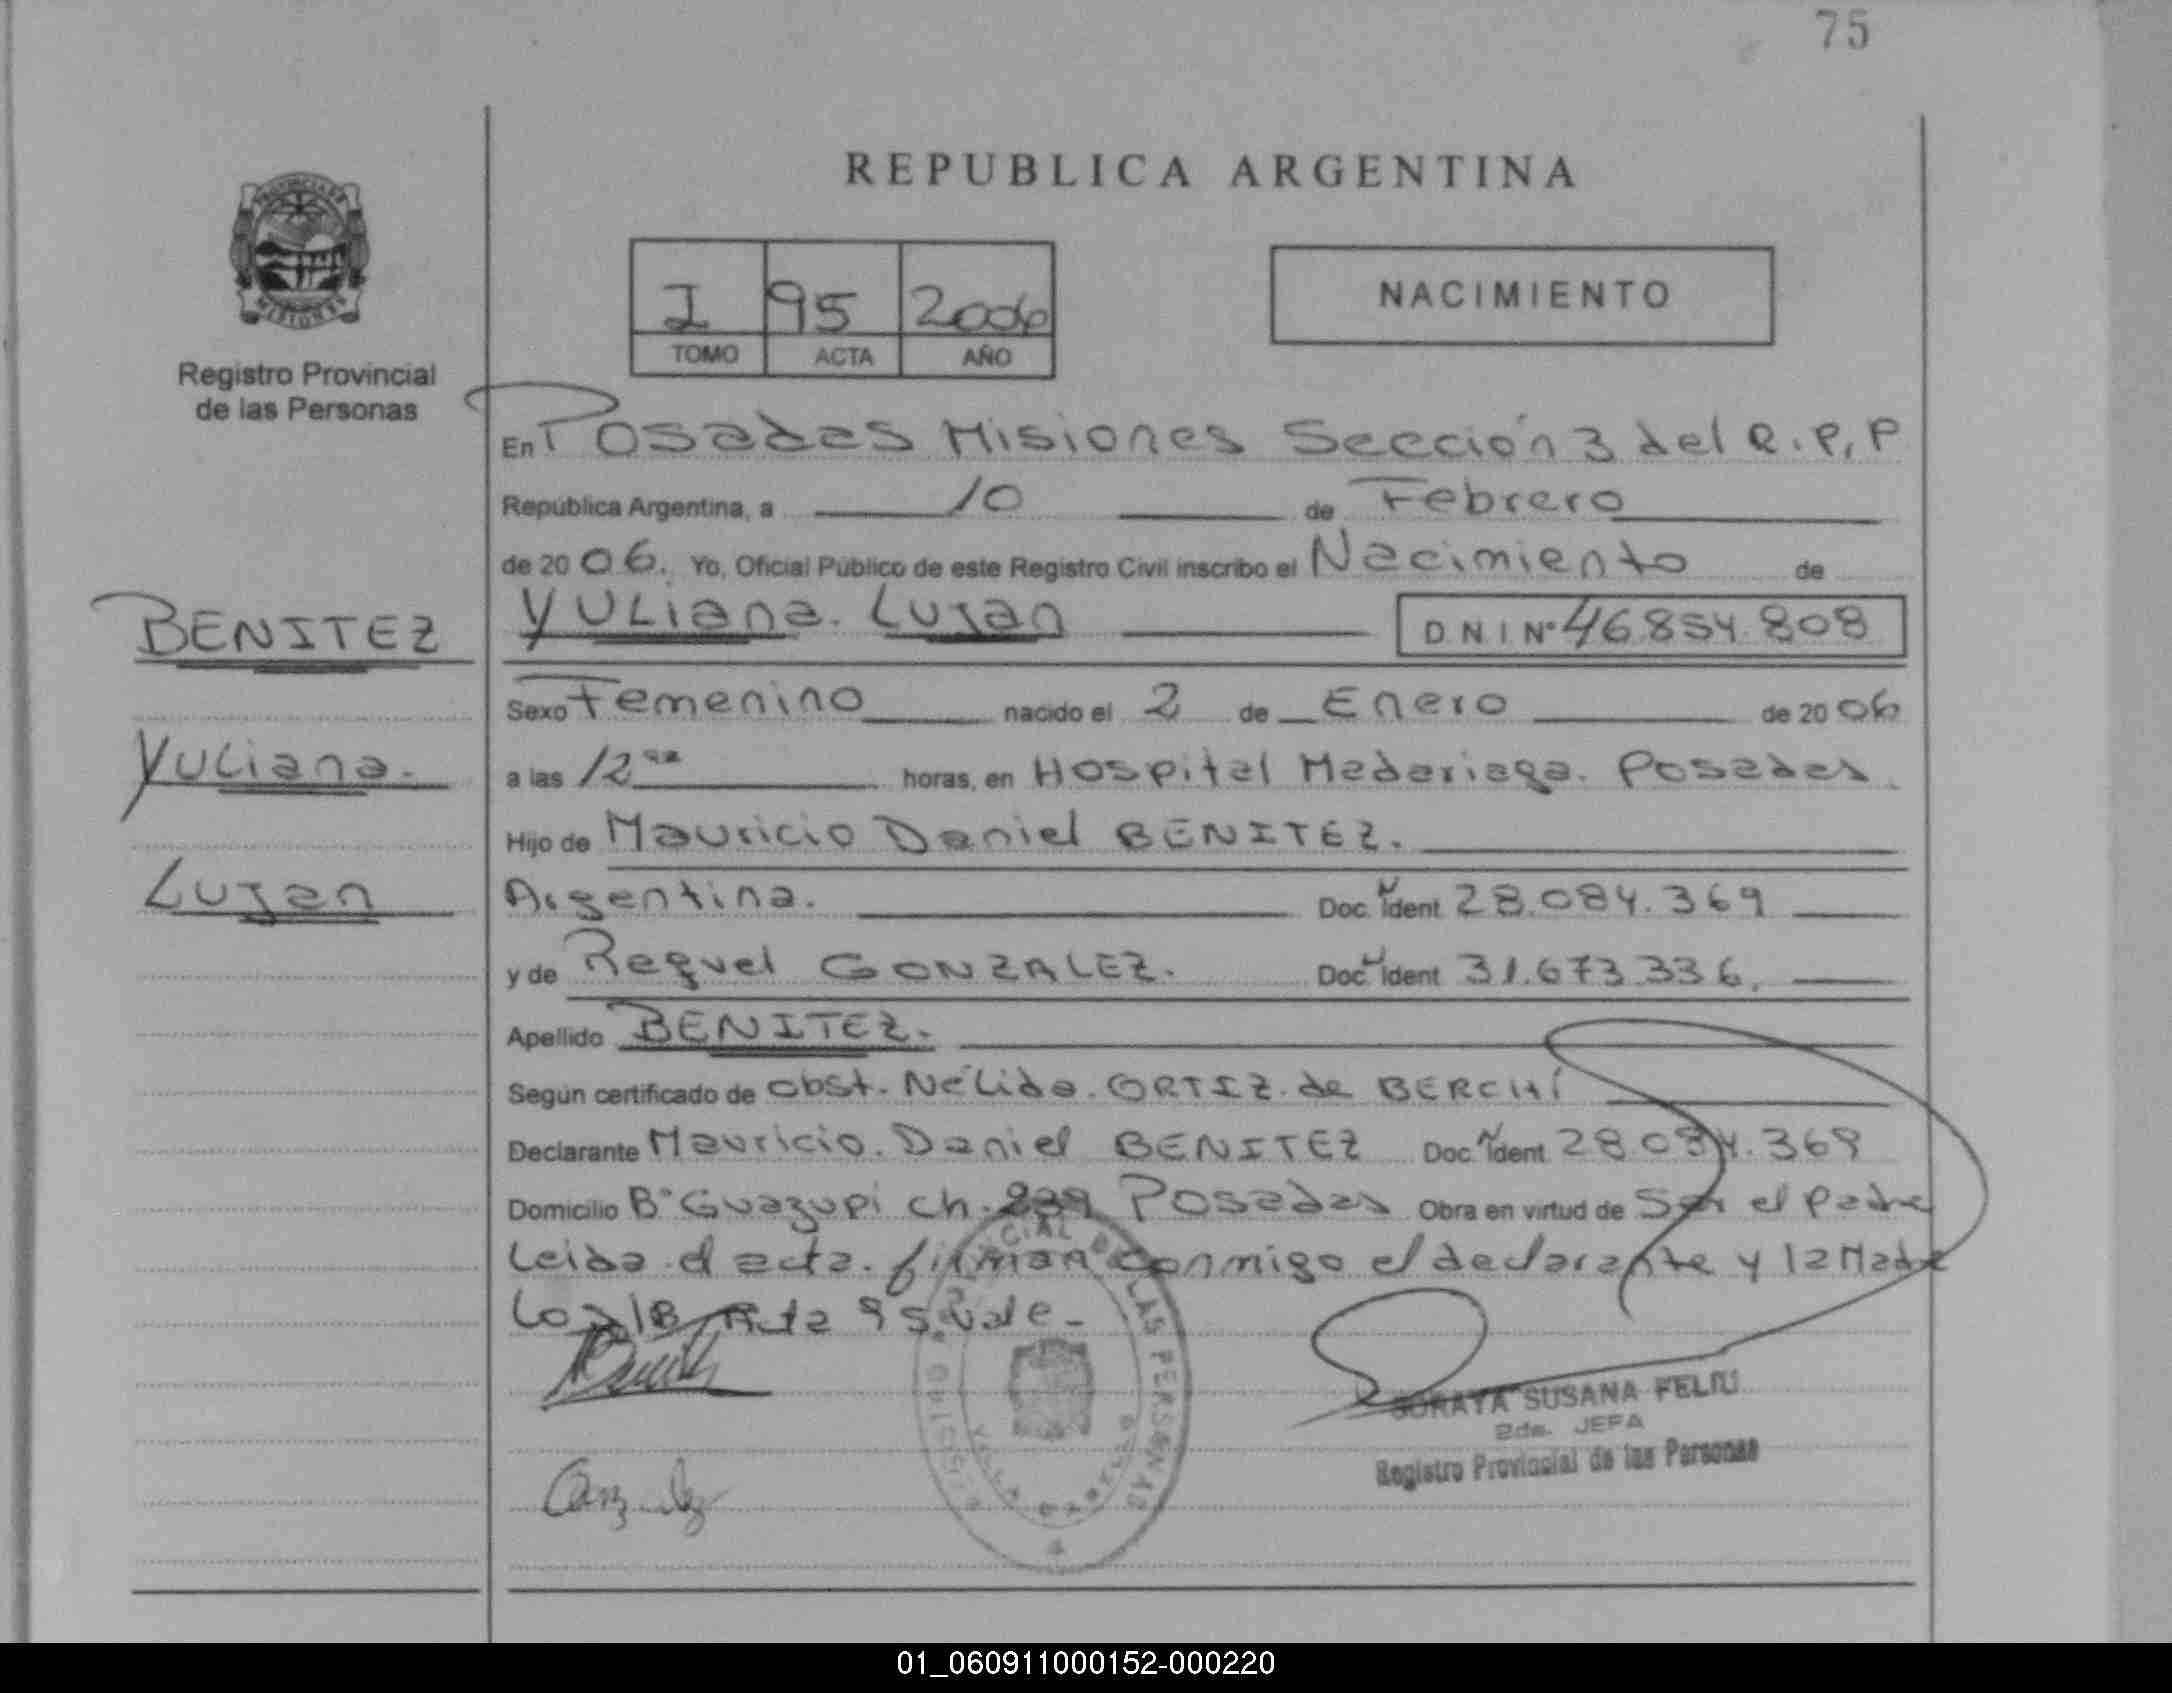 75
REPUBLICA ARGENTINA
PROVINCIA DE
MISIONES
Registro Provincial
de las Personas
I 95 2006
TOMO ACTA AÑO
NACIMIENTO
En Posadas Misiones Sección 3 del R.P.P
República Argentina, a 10 de Febrero
de 20 06. Yo, Oficial Público de este Registro Civil inscribo el Nacimiento de
BENITEZ
Yuliana.
Lujan
YULiana. Lujan DNI Nº 46.854.808
Sexo Femenino nacido el 2 de Enero de 20 06
a las 12 horas, en Hospital Madariaga. Posadas.
Hijo de Mauricio Daniel BENITEZ.
Argentina. Doc. N Ident 28.084.369
y de Raquel GONZALEZ. Doc. N Ident 31.673.336.
Apellido BENITEZ.
Según certificado de Obst. Nélida. ORTIZ. de BERCHÍ
Declarante Mauricio. Daniel BENITEZ Doc. N Ident 28.084.369
Domicilio Bº Guazupi ch. 239 Posadas Obra en virtud de Ser el padre
Leida el acta. firman conmigo el declarante y la Madre
Acta 95. Vale.-
SORAYA SUSANA FELIU
2da. JEFA
Registro Provincial de las Personas
01_060911000152-000220